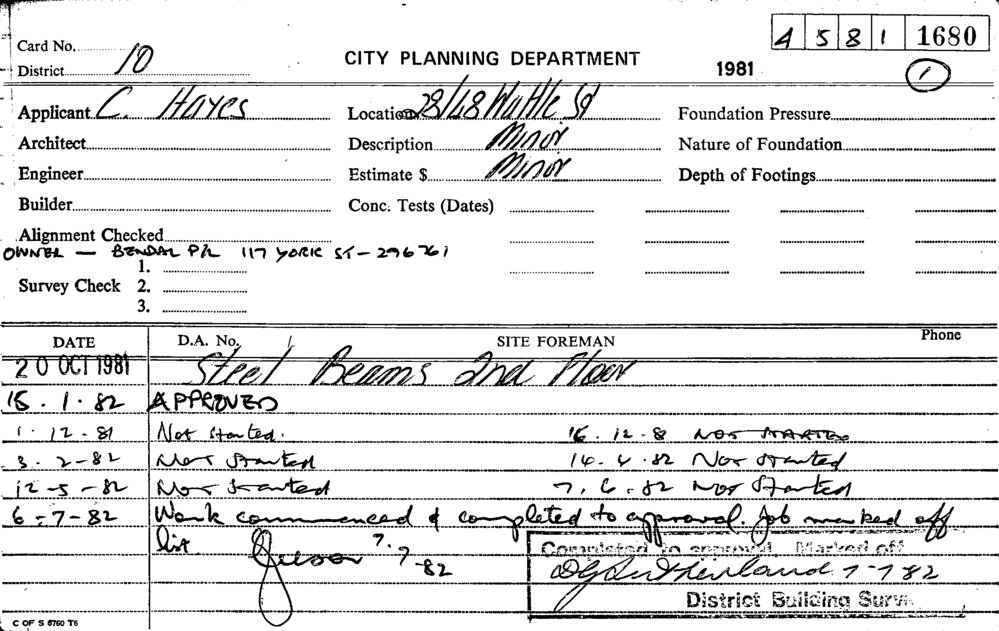 4 5 8 1 1680
Card No.
District 10
CITY PLANNING DEPARTMENT 1981
1
Applicant C. Hayes Location 28/48 Wattle St Foundation Pressure
Architect Description Minor Nature of Foundation
Engineer Estimate $ Minor Depth of Footings
Builder Conc. Tests (Dates)
Alignment Checked
OWNER — BENDAL P/L 117 YORK ST - 296761
1.
Survey Check 2.
3.
DATE D.A. No. SITE FOREMAN Phone
20 OCT 1981 Steel Beams 2nd Floor
15.1.82 APPROVED
1.12.81 Not started. 16.12.8 NOT STARTED
3.2-82 Not started 14.4.82 Not started
12-5-82 Not started 7.6.82 Not started
6-7-82 Work commenced & completed to approval. Job marked off
list. 7.7-82
Completed to approval. Marked off
7-7-82
District Building Surv
C OF S 6760 T6